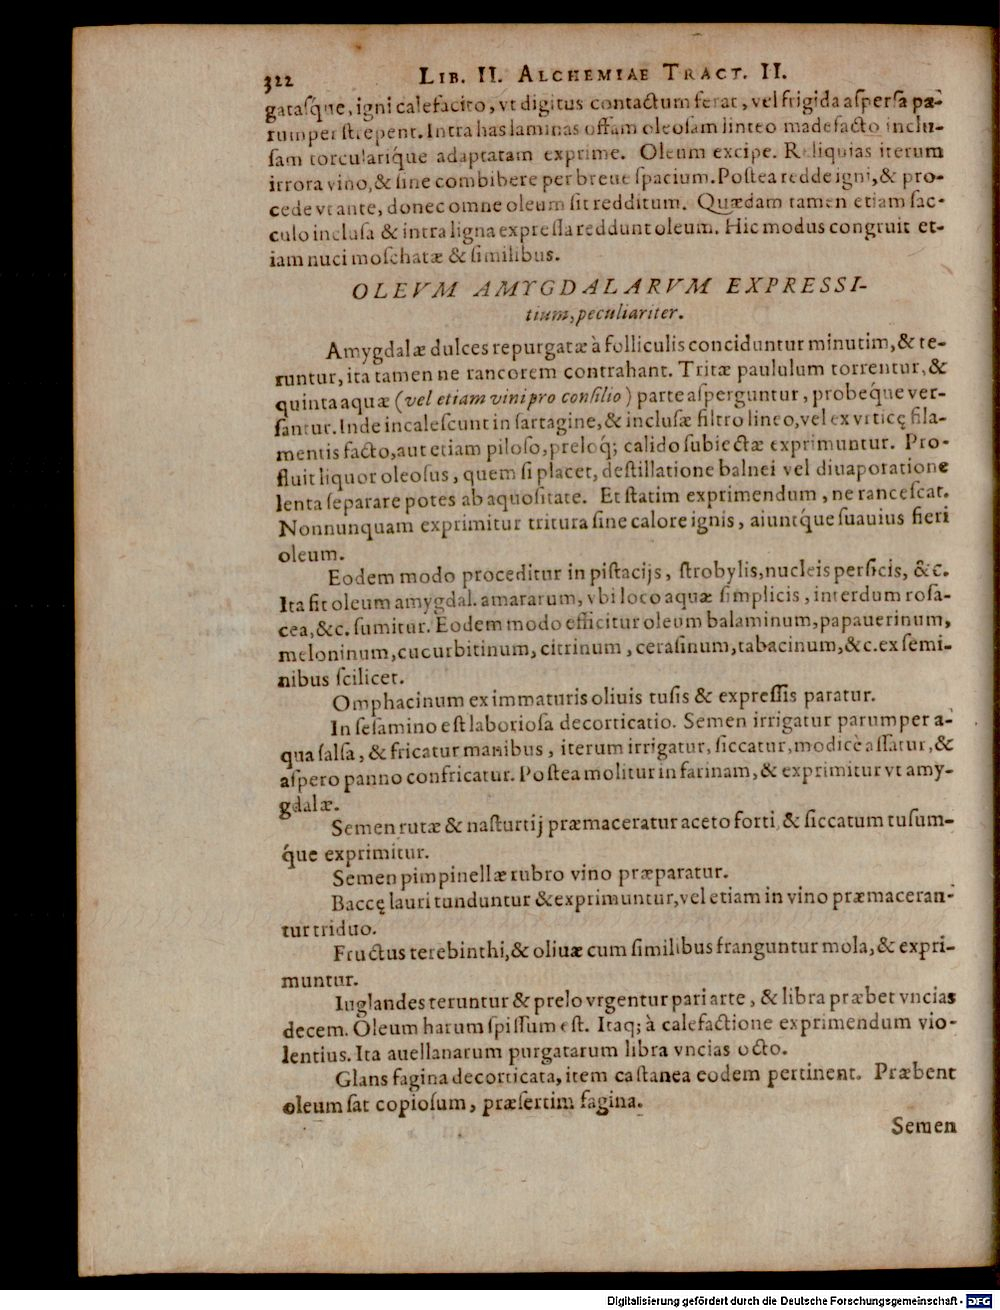 322 LIB. II. ALCHEMIAE TRACT. II.
gataſque, igni calefacito, vt digitus contactum ferat, vel frigida aſperſa pa-
rumper ſtrepent. Intra has laminas offam oleoſam linteo madefacto inclu-
ſam torculariq́ue adaptatam exprime. Oleum excipe. Reliquias iterum
irrora vino, & ſine combibere per breue ſpacium. Poſtea redde igni, & pro-
cede vt ante, donec omne oleum ſit redditum. Quædam tamen etiam ſac-
culo incluſa & intra ligna expreſſa reddunt oleum. Hic modus congruit et-
iam nuci moſchatæ & ſimilibus.
OLEVM AMYGDALARVM EXPRESSI-
tium, peculiariter.
Amygdalæ dulces repurgatæ à folliculis conciduntur minutim, & te-
runtur, ita tamen ne rancorem contrahant. Tritæ paululum torrentur, &
quinta aquæ (vel etiam vini pro conſilio) parte aſperguntur, probeq́ue ver-
ſantur. Inde incaleſcunt in ſartagine, & incluſæ filtro lineo, vel ex vrticę fila-
mentis facto, aut etiam piloſo, preloq́; calido ſubiectæ exprimuntur. Pro-
fluit liquor oleoſus, quem ſi placet, deſtillatione balnei vel diuaporatione
lenta ſeparare potes ab aquoſitate. Et ſtatim exprimendum, ne ranceſcat.
Nonnunquam exprimitur tritura ſine calore ignis, aiuntq́ue ſuauius fieri
oleum.
Eodem modo proceditur in piſtacijs, ſtrobylis, nucleis perſicis, &c.
Ita fit oleum amygdal. amararum, vbi loco aquæ ſimplicis, interdum roſa-
cea, &c. ſumitur. Eodem modo efficitur oleum balaminum, papauerinum,
meloninum, cucurbitinum, citrinum, ceraſinum, tabacinum, &c. ex ſemi-
nibus ſcilicet.
Omphacinum ex immaturis oliuis tuſis & expreſſis paratur.
In ſeſamino eſt laborioſa decorticatio. Semen irrigatur parumper a-
qua ſalſa, & fricatur manibus, iterum irrigatur, ſiccatur, modicè aſſatur, &
aſpero panno confricatur. Poſtea molitur in farinam, & exprimitur vt amy-
gdalæ.
Semen rutæ & naſturtij præmaceratur aceto forti, & ſiccatum tuſum-
q́ue exprimitur.
Semen pimpinellæ rubro vino præparatur.
Baccę lauri tunduntur & exprimuntur, vel etiam in vino præmaceran-
tur triduo.
Fructus terebinthi, & oliuæ cum ſimilibus franguntur mola, & expri-
muntur.
Iuglandes teruntur & prelo vrgentur pari arte, & libra præbet vncias
decem. Oleum harum ſpiſſum eſt. Itaq; à calefactione exprimendum vio-
lentius. Ita auellanarum purgatarum libra vncias octo.
Glans fagina decorticata, item caſtanea eodem pertinent. Præbent
oleum ſat copioſum, præſertim fagina.
Semen
Digitalisierung gefördert durch die Deutsche Forschungsgemeinschaft - DFG